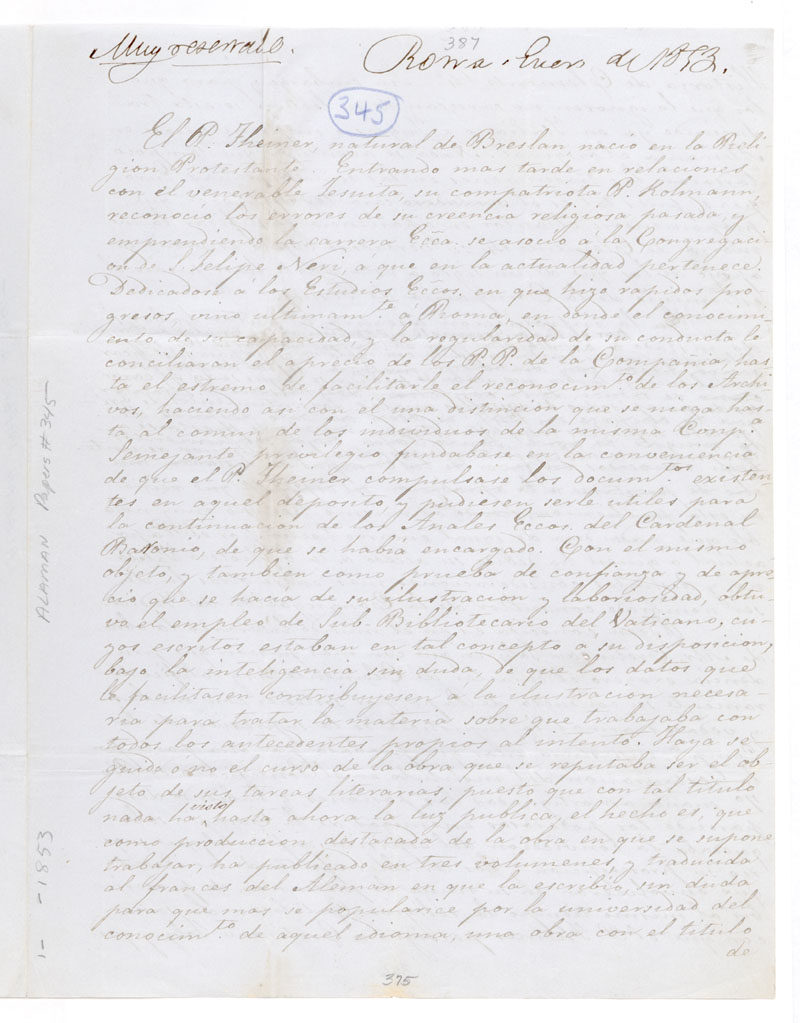 387
Muy reservado.
Roma, Enero de 1853.
345
El P. Theiner, natural de Breslau, nació en la Reli-
gion Protestante. Entrando mas tarde en relaciones
con el venerable Jesuita, su compatriota P. Kohmann,
reconoció los errores de su creencia religiosa pasada, y
emprendiendo la carrera Ecca. se asoció á la Congregaci-
on de S. Felipe Neri, á que en la actualidad pertenece.
Dedicadose a los Estudios Eccos. en que hizo rapidos pro
gresos, vino ultimamte. a Roma, en donde el conocim-
ento de su capacidad, y la regularidad de su conducta le
conciliaron el aprecio de los P.P. de la Compañia, has
ta el estremo de facilitarle el reconocimto. de los Archi
vos, haciendo asi con el una distincion que se niega has
ta al comun de los individuos de la misma Compa.
Semejante privilegio fundabase en la conveniencia
de que el P. Theiner compulsase los documtos. existen
tes en aquel deposito, y pudiesen serle utiles para
la continuacion de los Anales Eccos. del Cardenal
Baronio, de que se habia encargado. Con el mismo
objeto, y tambien como prueba de confianza y de apre
cio que se hacia de su ilustracion y laboriosidad, obtu
vo el empleo de Sub-Bibliotecario del Vaticano, cu-
yos escritos estaban en tal concepto a su disposicion,
bajo la inteligencia sin duda, de que los datos que
le facilitasen contribuyesen a la ilustracion necesa-
ria para tratar la materia sobre que trabajaba con
todos los antecedentes propios al intento. Haya se-
guido ó no el curso de la obra que se reputaba ser el ob-
jeto de sus tareas literarias, puesto que con tal titulo
nada ha visto hasta ahora la luz publica, el hecho es, que
como produccion destacada de la obra en que se supone
trabajar, ha publicado en tres volumenes, y traducida
al frances del Aleman en que la escribió, sin duda
para que mas se popularice por la universidad del
conocimto. de aquel idioma, una obra con el titulo
de
375
ALAMAN Papers # 345
1- -1853